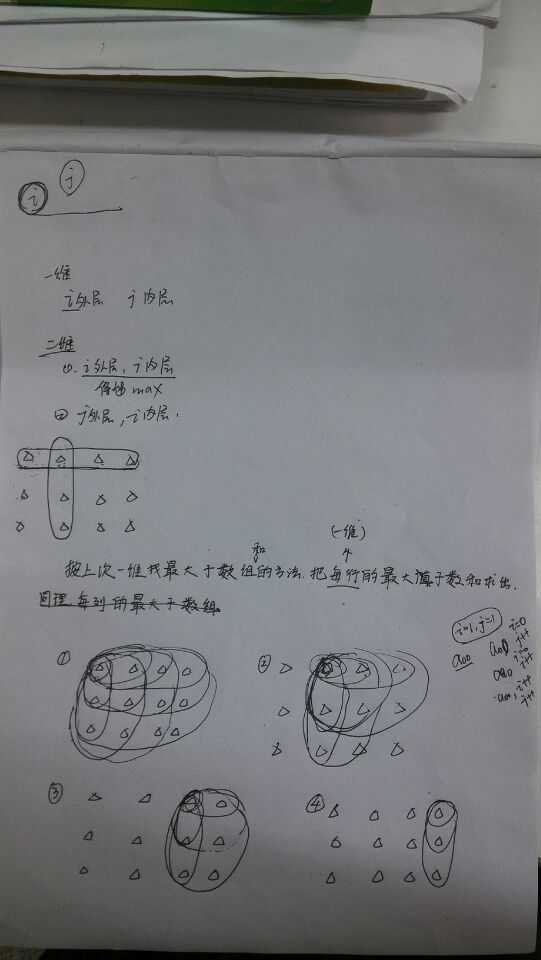 i j
一维
i外层 j内层
二维
①. i外层, j内层
max
② j外层, i内层.
和 (一维)
按上次一维找最大子数组的方法, 把每行的最大子数和求出,
同理, 每列的最大子数组
i=1, j=1 i=0
a00 j++
①
②
③
④